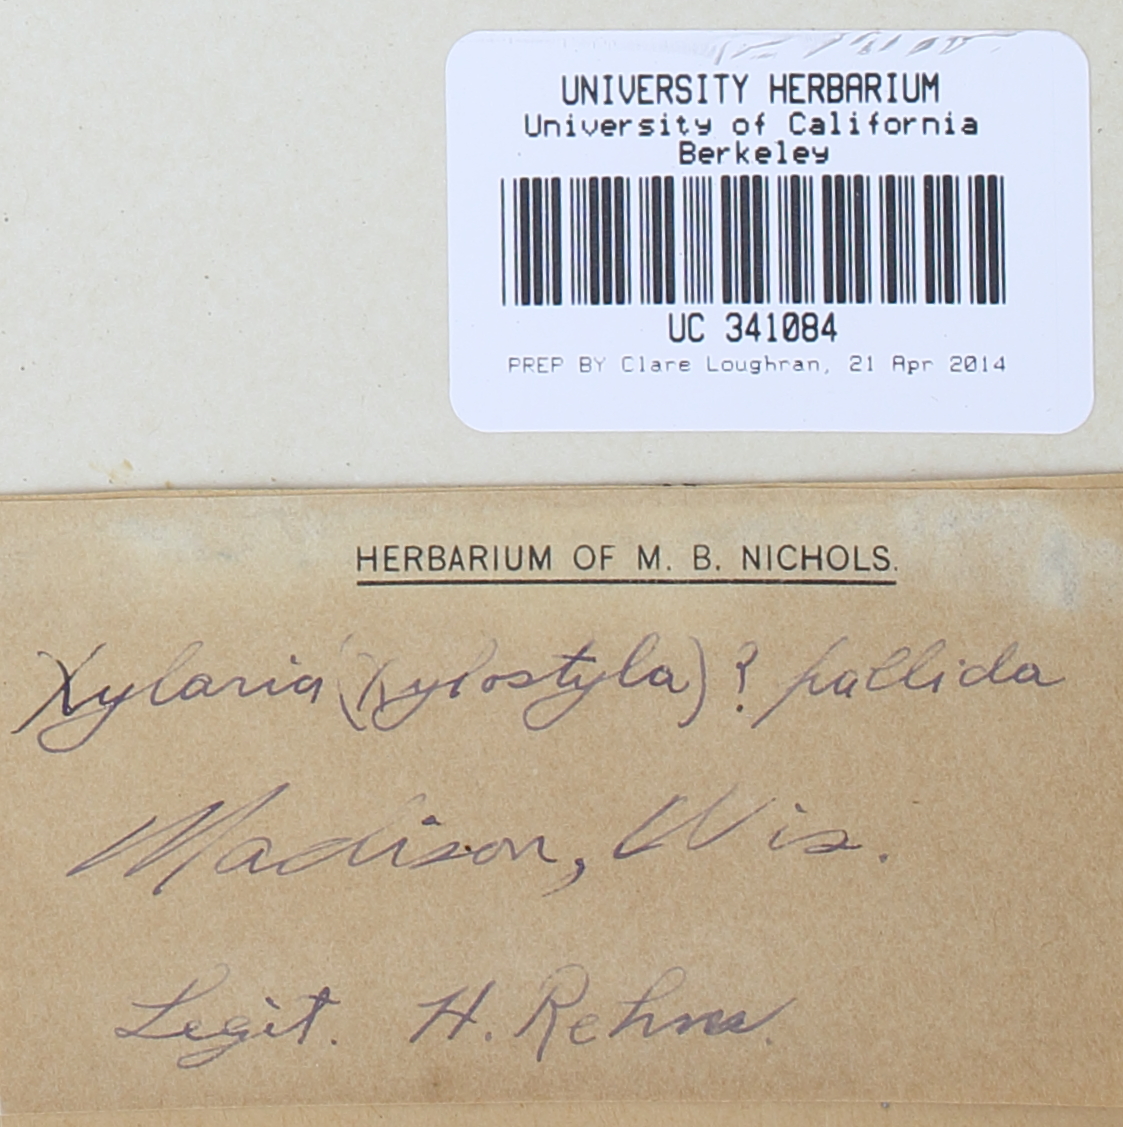 UNIVERSITY HERBARIUM
University of California
Berkeley
UC 341084
PREP BY Clare Loughran, 21 Apr 2014
HERBARIUM OF M. B. NICHOLS.
Xylaria (Xylostyla)? pallida
Madison, Wis.
Legit. H. Rehm.